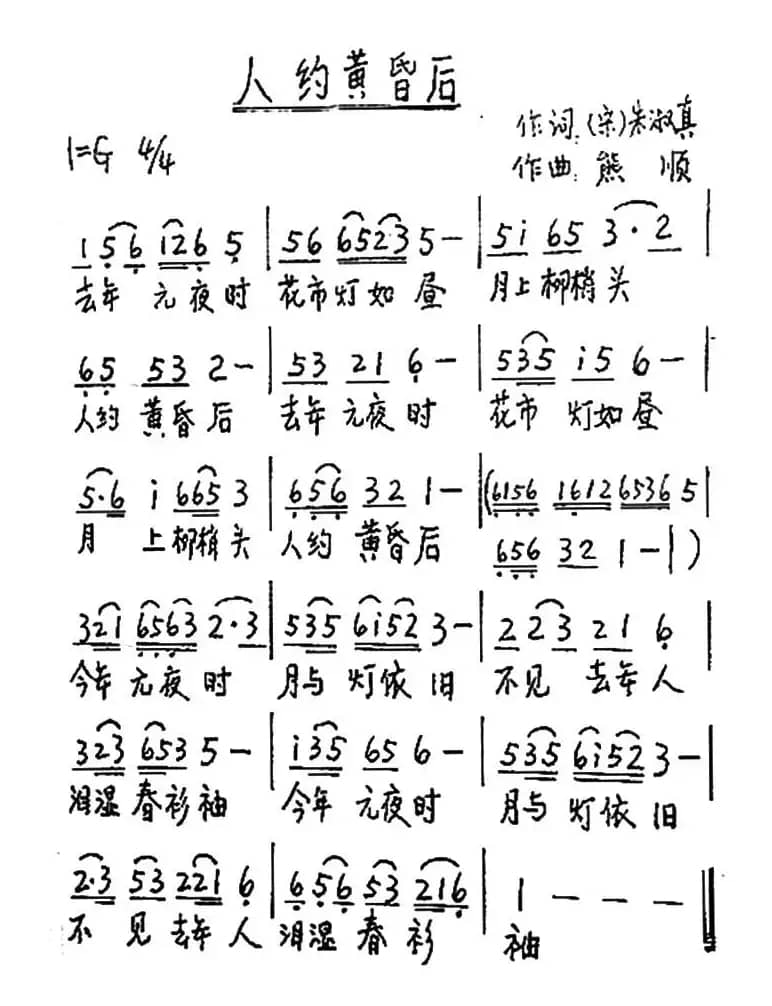 人约黄昏后
作词:(宋)朱淑真
1=G 4/4
作曲:熊 顺
1 5 6 i 2 6 5 | 5 6 6 5 2·3 5 — | 5 i 6 5 3·2 |
去年 元夜时 花市灯如昼 月上柳梢头
6 5 5 3 2 — | 5 3 2 1 6 — | 5 3 5 i 5 6 — |
人约 黄昏后 去年 元夜时 花市 灯如昼
5·6 i 6 6 5 3 | 6 5 6 3 2 1 — | (6156 1612 6536 5 |
月 上柳梢头 人约 黄昏后
656 32 1 — | )
3 2 1 6 5 6 3 2·3 | 5 3 5 6 i 5 2 3 — | 2 2 3 2 1 6 |
今年 元夜时 月与 灯依旧 不见 去年人
3 2 3 6 5 3 5 — | i 3 5 6 5 6 — | 5 3 5 6 i 5 2 3 — |
泪湿 春衫袖 今年 元夜时 月与 灯依旧
2·3 5 3 2 2 1 6 | 6 5 6 5 3 2 1 6 | 1 — — — ‖
不 见 去年人 泪湿 春 衫 袖